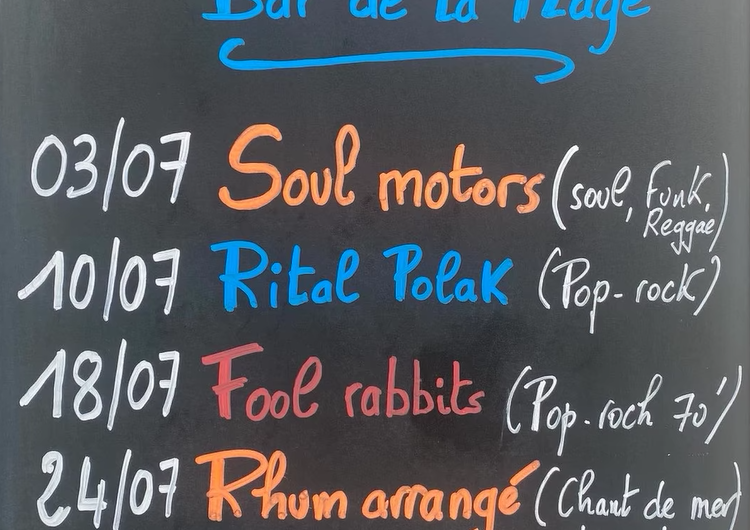 Bar de la Plage
03/07 Soul motors (soul, Funk, Reggae)
10/07 Rital Polak (Pop-rock)
18/07 Fool rabbits (Pop-roch 70')
24/07 Rhum arrangé (Chant de mer)